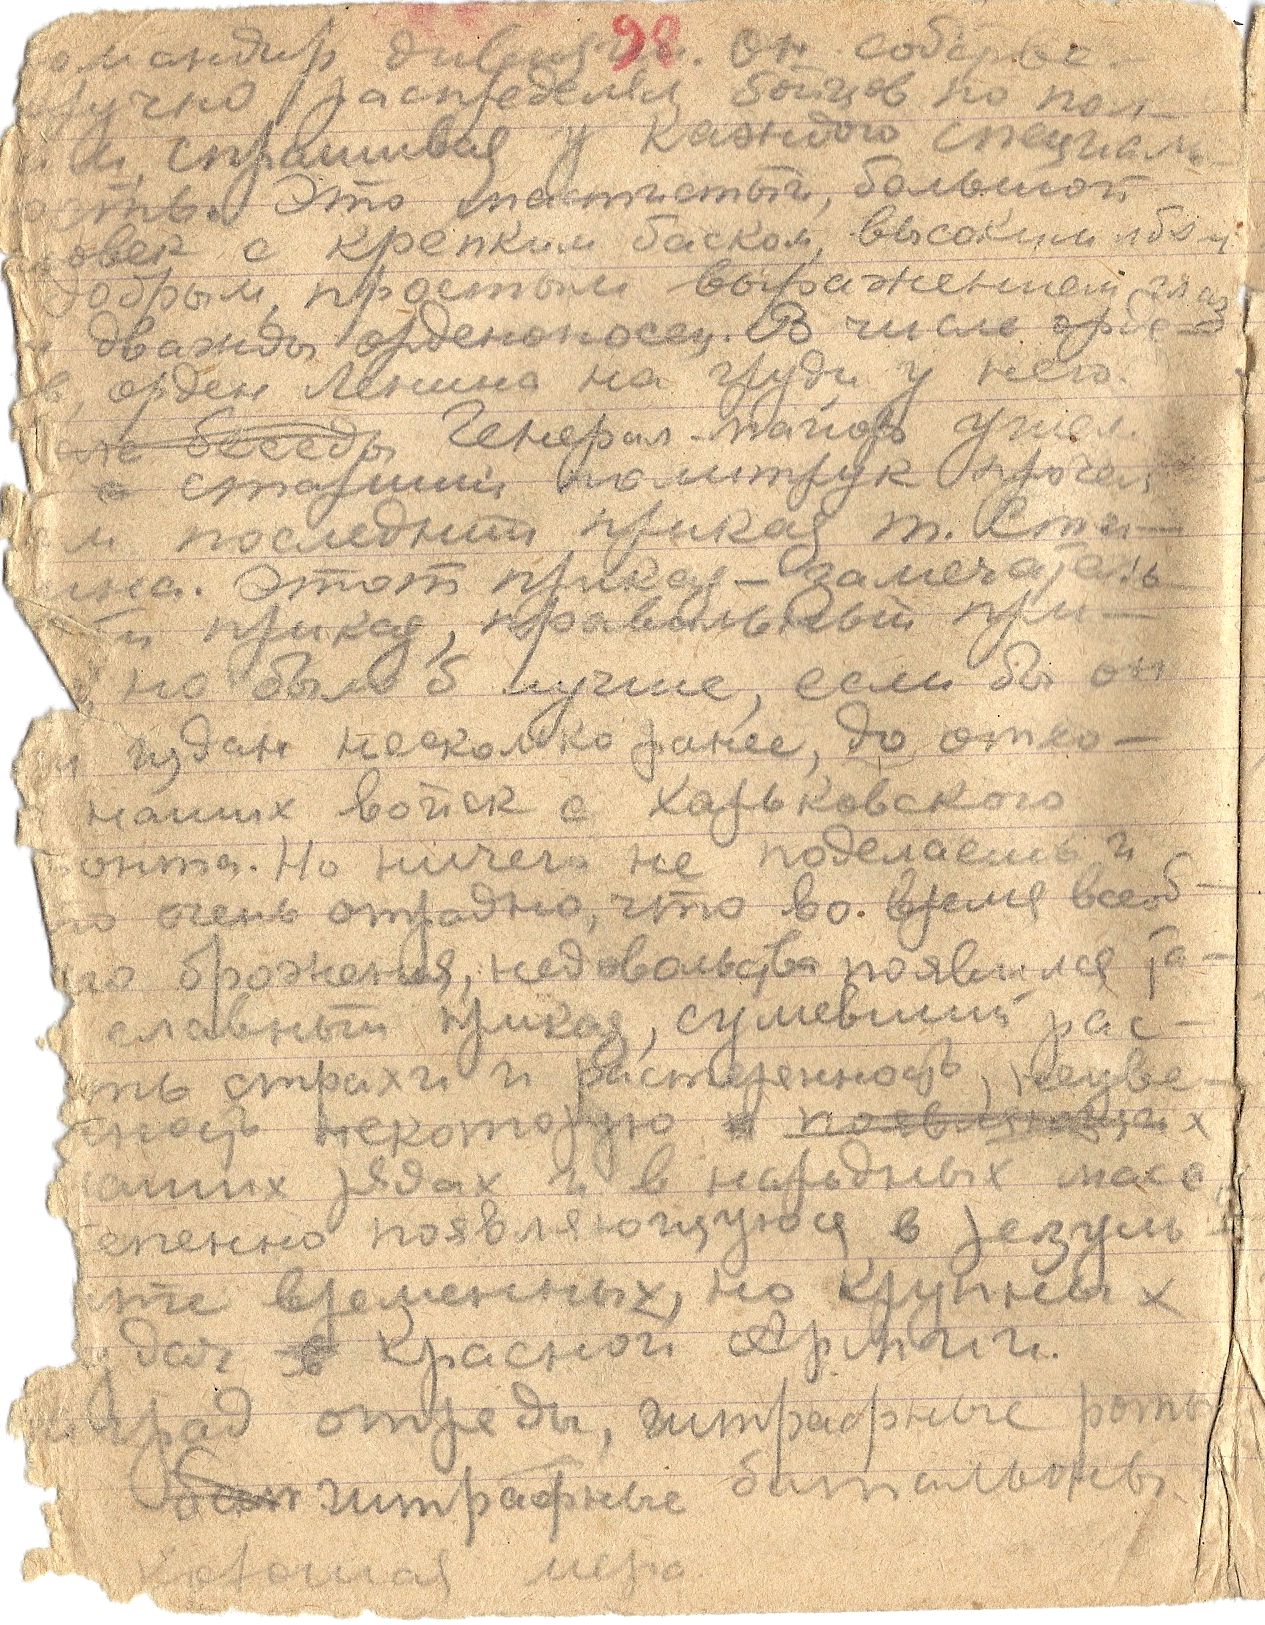 98
омандир дивизии. Он собстве-
ручно распределял бойцов по пол-
ам, спрашивая у каждого специаль-
ость. Это мастистый, большой
овек с крепким баском, высоким лбом
добрым, простым выражением глаз
и дважды орденоносец. В числе орде-
в, орден Ленина на груди у него.
ле беседы Генерал-майор ушел.
а старший политрук прочел
ам последний приказ т. Ста-
ина. Этот приказ – замечатель
ый приказ, правильный при-
з, но было б лучше, если бы он
ыл издан несколько ранее, до отхо-
наших войск с Харьковского
ронта. Но ничего не поделаешь и
то очень отрадно, что во время всеоб-
его брожения, недовольства появился та-
славный приказ, сумевший рас-
ять страхи и растеренность, неуве-
енность некоторую в появляющуюся х
наших рядах и в народных масса
тепенно появляющуюся в резуль
ате временных, но крупных
удач в Красной Армии.
заград отреды, штрафные роты
штрафные батальоны.
хорошая мера